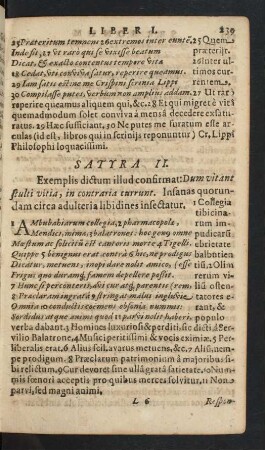 LIBER I. 239
25 Præteritum temnens 26 extremos inter eunte.
Inde fit, 27 Ut raro qui se vixisse beatum
Dicat, & exacto contentus tempore vita
28 Cedat, uti conviva satur, reperire queamus.
29 Jam satis est: ne me Crispini scrinia Lippi
30 Compilasse putes, verbum non amplius addam.
reperire queamus aliquem qui, &c. 28 Et qui migret è vitâ
quemadmodum solet conviva à mensâ decedere exsatu-
ratus. 29 Hæc sufficiant. 30 Ne putes me furatum esse ar-
culas (id est, libros qui in scrinija reponuntur) Cr, Lippi
Philosophi loquacissimi.
25 Quem
præterijt.
26 Inter ul-
timos cur-
rentem.
27 Ut rar
SATYRA II.
Exemplis dictum illud confirmat: Dum vitant
stulti vitia, in contraria currunt. Insanas quorun-
dam circa adulteria libidines insectatur.
1 AMbubaiarum collegia, 2 pharmacopolæ,
Mendici, mimæ, 3 balatrones: hoc genus omne
Mæstum ac solicitū est cantoris morte 4 Tigelli.
Quippe 5 benignus erat. contrà 6 hic, ne prodigus
Dicatur, metuens, inopi dare nolit amico,
Frigus quo duramq́; famem depellere possit.
7 Hunc si perconteris, avi cur atq́; parentis
8 Præclaram ingratâ 9 stringat malus ingluvie
Omnia conductis coëmens obsonia nummis:
Sordidus atque animi quod 11 parvi nolit haberi,
1 Collegia
tibicina-
rum im-
pudicarū
ebrietate
balbutien-
tium
verba dabant. 3 Homines luxuriosi & perditi, sic dicti à Ser-
vilio Balatrone, 4 Musici peritissimi & vocis eximiæ. 5 Per-
liberalis erat. 6 Alius scil. avarus metuens, &c. 7 Alium nem-
pe prodigum. 8 Præclarum patrimonium à majoribus si-
bi relictum. 9 Cur devoret sine ullâ gratâ satietate. 10 Num-
mis fœnori acceptis pro quibus merces solvitur. 11 Non
parvi, sed magni animi.
L 6 Respon-